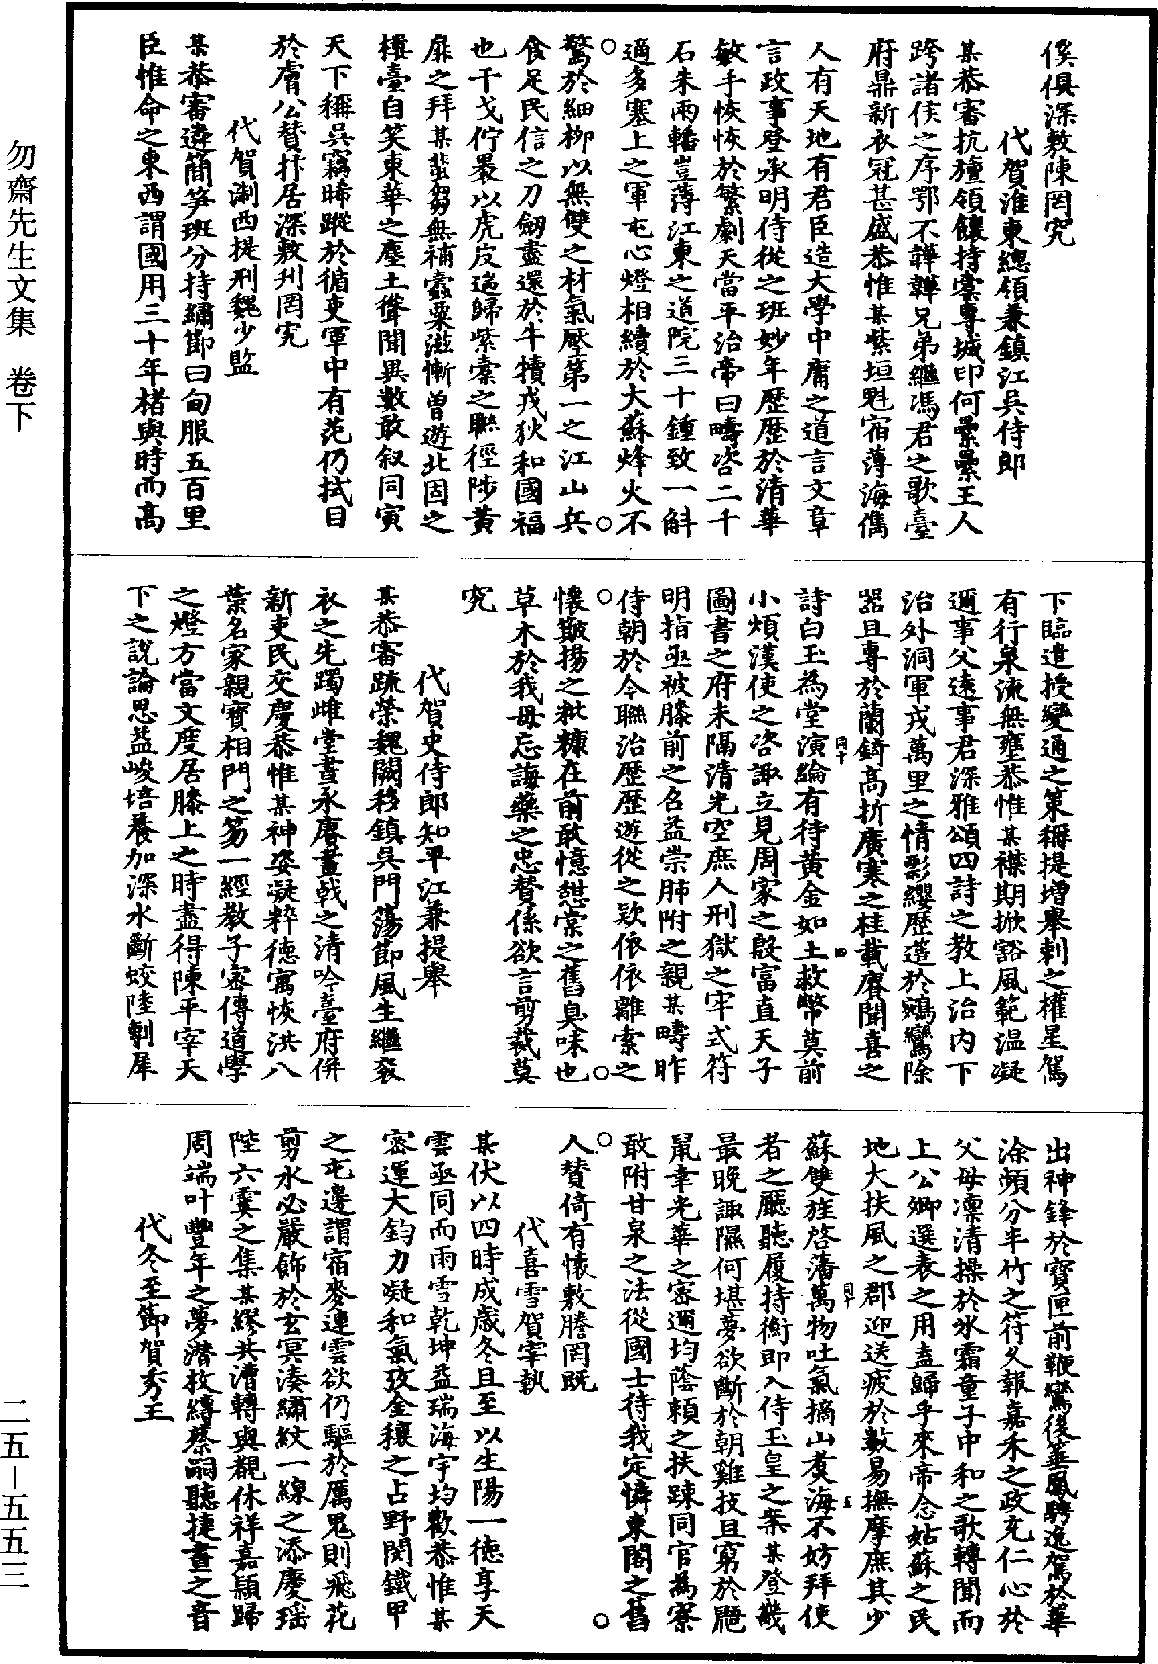 勿齋先生文集　卷下
傒俱深敷陳罔究
代賀淮東總領兼鎮江吳侍郎
某恭審抗旜領饟持橐專城印何纍纍王人
跨諸侯之序鄂不韡韡兄弟繼馮君之歌臺
府鼎新衣冠甚盛恭惟某紫垣魁宿薄海儁
人有天地有君臣造大學中庸之道言文章
言政事登承明侍從之班妙年歷歷於清華
敏手恢恢於繁劇天當平治帝曰疇咨二千
石朱兩轓豈薄江東之道院三十鍾致一斛
適多塞上之軍屯心燈相續於大蘇烽火不
驚於細柳以無雙之材氣壓第一之江山兵
食足民信之刀劒盡還於牛犢戎狄和國福
也干戈佇櫜以虎皮遄歸紫橐之聯徑陟黃
扉之拜某蜚芻無補蠹粟滋慚曾遊北固之
樓臺自笑東華之塵土聳聞異數敢叙同寅
天下稱吳竊睎蹤於循吏軍中有范仍拭目
於膚公賛抃居深敷刋罔究
代賀淛西提刑魏少監
某恭審遴簡笋班分持繡節曰甸服五百里
臣惟命之東西謂國用三十年楮與時而高
下臨遣授變通之策稱提增舉刺之權星駕
有行泉流無壅恭惟某襟期掀豁風範温凝
邇事父遠事君深雅頌四詩之敎上治内下
治外洞軍戎萬里之情影纓歷莅於鵷鸞除
器且專於蘭錡高折廣寒之桂載賡聞喜之
詩白玉為堂演綸有待黃金如土救幣莫前
小煩漢使之咨諏立見周家之殷富直天子
圖書之府未隔清光空庶人刑獄之牢式符
明指亟被膝前之召益崇肺附之親某疇昨
侍朝於今聯治歷歷遊從之欵依依離索之
懷簸揚之粃糠在前敢憶憇棠之舊臭味也
草木於我毋忘誨藥之忠賛係欲言剪裁莫
究
代賀史侍郎知平江兼提舉
某恭審疏榮魏闕移鎮吳門蕩節風生繼衮
衣之先躅雌堂晝永賡畫戟之清吟臺府併
新吏民交慶恭惟某神姿凝粹德寓恢洪八
葉名家親寶相門之笏一經敎子密傳道學
之燈方當文度居膝上之時盡得陳平宰天
下之説論思益峻培養加深水斷蛟陸剸犀
出神鋒於寶匣前鞭鸞後箠鳳騁逸駕於華
涂頻分半竹之符爻報嘉禾之政充仁心於
父母凜清操於氷霜童子中和之歌轉聞而
上公卿選表之用盍歸乎來帝念姑蘇之民
地大扶風之郡迎送疲於數易撫摩庶其少
蘇雙旌啓藩萬物吐氣摘山煑海不妨拜使
者之廳聽履持衡即入侍玉皇之案某登畿
最晚諏隰何堪夢欲斷於朝雞技且窮於鼯
鼠幸光華之密邇均蔭賴之扶踈同官為寮
敢附甘泉之法從國士待我定憐東閣之舊
人賛倚有懷敷謄罔既
代喜雪賀宰執
某伏以四時成歲冬且至以生陽一德享天
雲亟同而雨雪乾坤益瑞海宇均歡恭惟某
密運大鈞力凝和氣孜金穰之占野閔鐵甲
之屯邊謂宿麥連雲欲仍驅於厲鬼則飛花
剪水必嚴飾於玄冥湊繡紋一線之添慶瑶
陛六霙之集某繆共漕轉與覩休祥嘉頴歸
周端叶豐年之夢潜抆縛蔡嗣聽捷晝之音
代冬至節賀秀王
二五—五五三